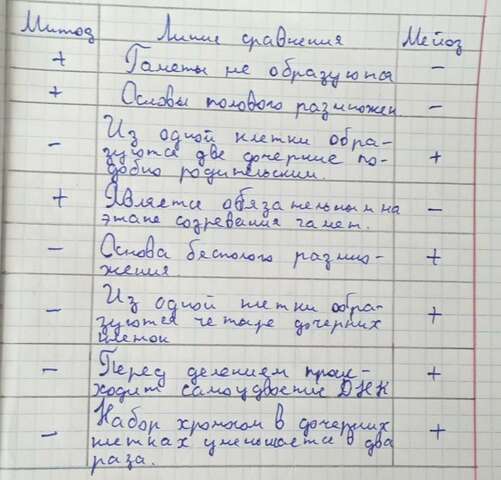 Митоз Линие сравнения Мейоз
+ Гаметы не образуются -
+ Основы полового размножен. -
Из одной клетки обра-
- зуются две дочерние по- +
добно родительским.
+ Является обязательным на -
этапе созревания гамет.
- Основа бесполого размно- +
жения.
Из одной клетки обра-
- зуются четыре дочерних +
клеток
- Перед делением проис- +
ходит самоудвоение ДНК
Набор хромосом в дочерних
- клетках уменьшается в два +
раза.